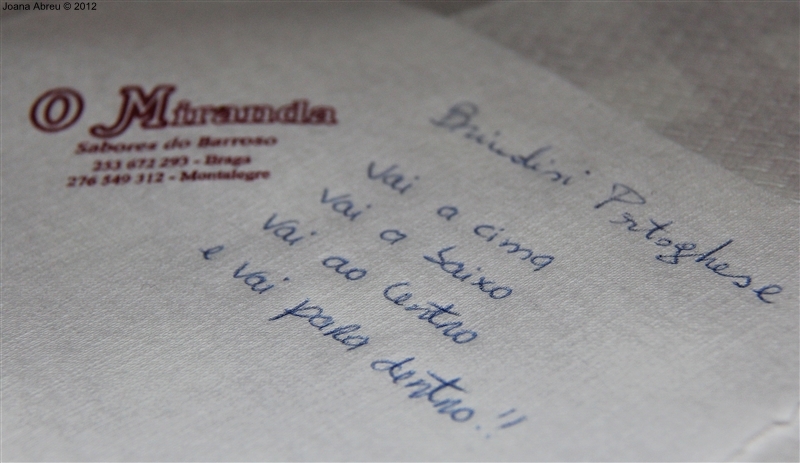 Joana Abreu © 2012
O Miranda
Sabores do Barroso
253 672 293 - Braga
276 549 312 - Montalegre
Brindisi Portoghese
vai a cima
vai a baixo
vai ao centro
e vai para dentro!!